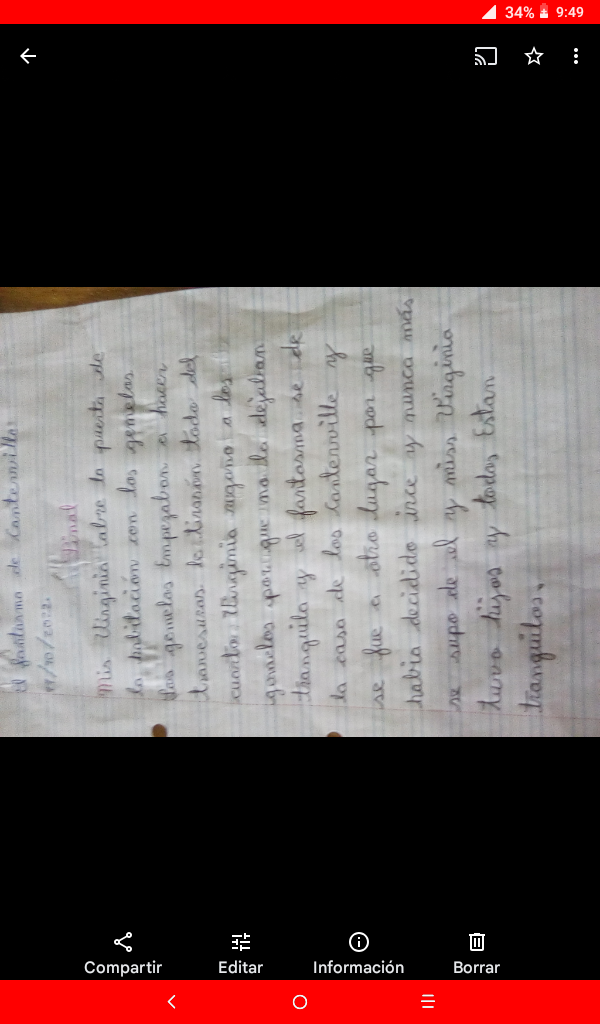 34% 9:49
el fantasma de Canterville
Final
Mis Virginia abre la puerta de
la habitación con los gemelos
los gemelos Empezaban a hacer
travesuras le tirarón todo del
cuarto. Virginia regano a los
gemelos porque no lo dejaban
tranquilo y el fantasma se de
la casa de los Canterville y
se fue a otro lugar por que
había decidido irce y nunca más
se supo de el y miss Virginia
tuvo hijos y todos Estan
tranquilos.
Compartir Editar Información Borrar